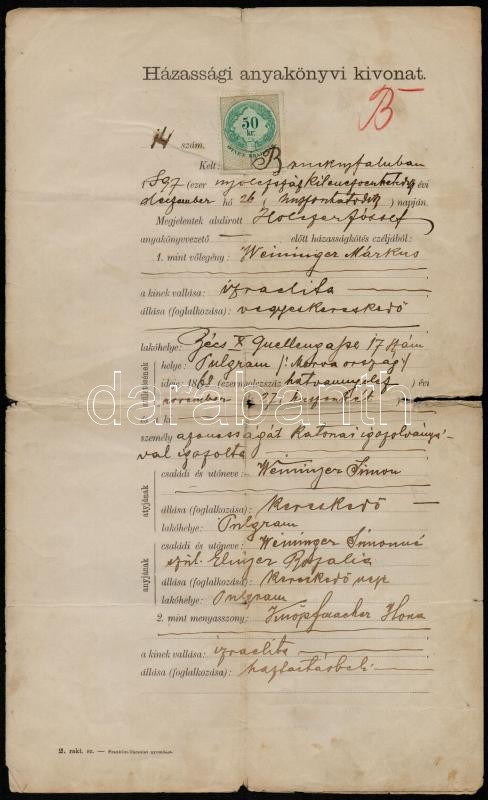 Házassági anyakönyvi kivonat.
B
50
kr.
14 szám.
Kelt:
1897 (ezer nyolczszázkilenczvenhét) évi
deczember hó 26 (huszonhatodik) napján.
Megjelentek alulirott Holczer József
anyakönyvvezető előtt házasságkötés czéljából:
1. mint vőlegény: Weininger Márkus
a kinek vallása: izraelita
állása (foglalkozása): vegyeskereskedő
lakóhelye: Bécs X Quellengasse 17 szám
és születésének
helye: Pulgram /: Morvaország :/
ideje: 186 (ezernyolczszáz) évi
november 27
a ki
személyazonosságát Katonai igazolványá-
val igazolta
darabanth
atyjának
családi és utóneve: Weininger Simon
állása (foglalkozása): kereskedő
lakóhelye: Pulgram
anyjának
családi és utóneve: Weininger Simonné
szül. Rozalia
állása (foglalkozása): kereskedő neje
lakóhelye: Pulgram
2. mint menyasszony: Knöpfmacher Ilona
a kinek vallása: izraelita
állása (foglalkozása): háztartásbeli
2. rakt. sz. — Franklin-Társulat nyomdája.